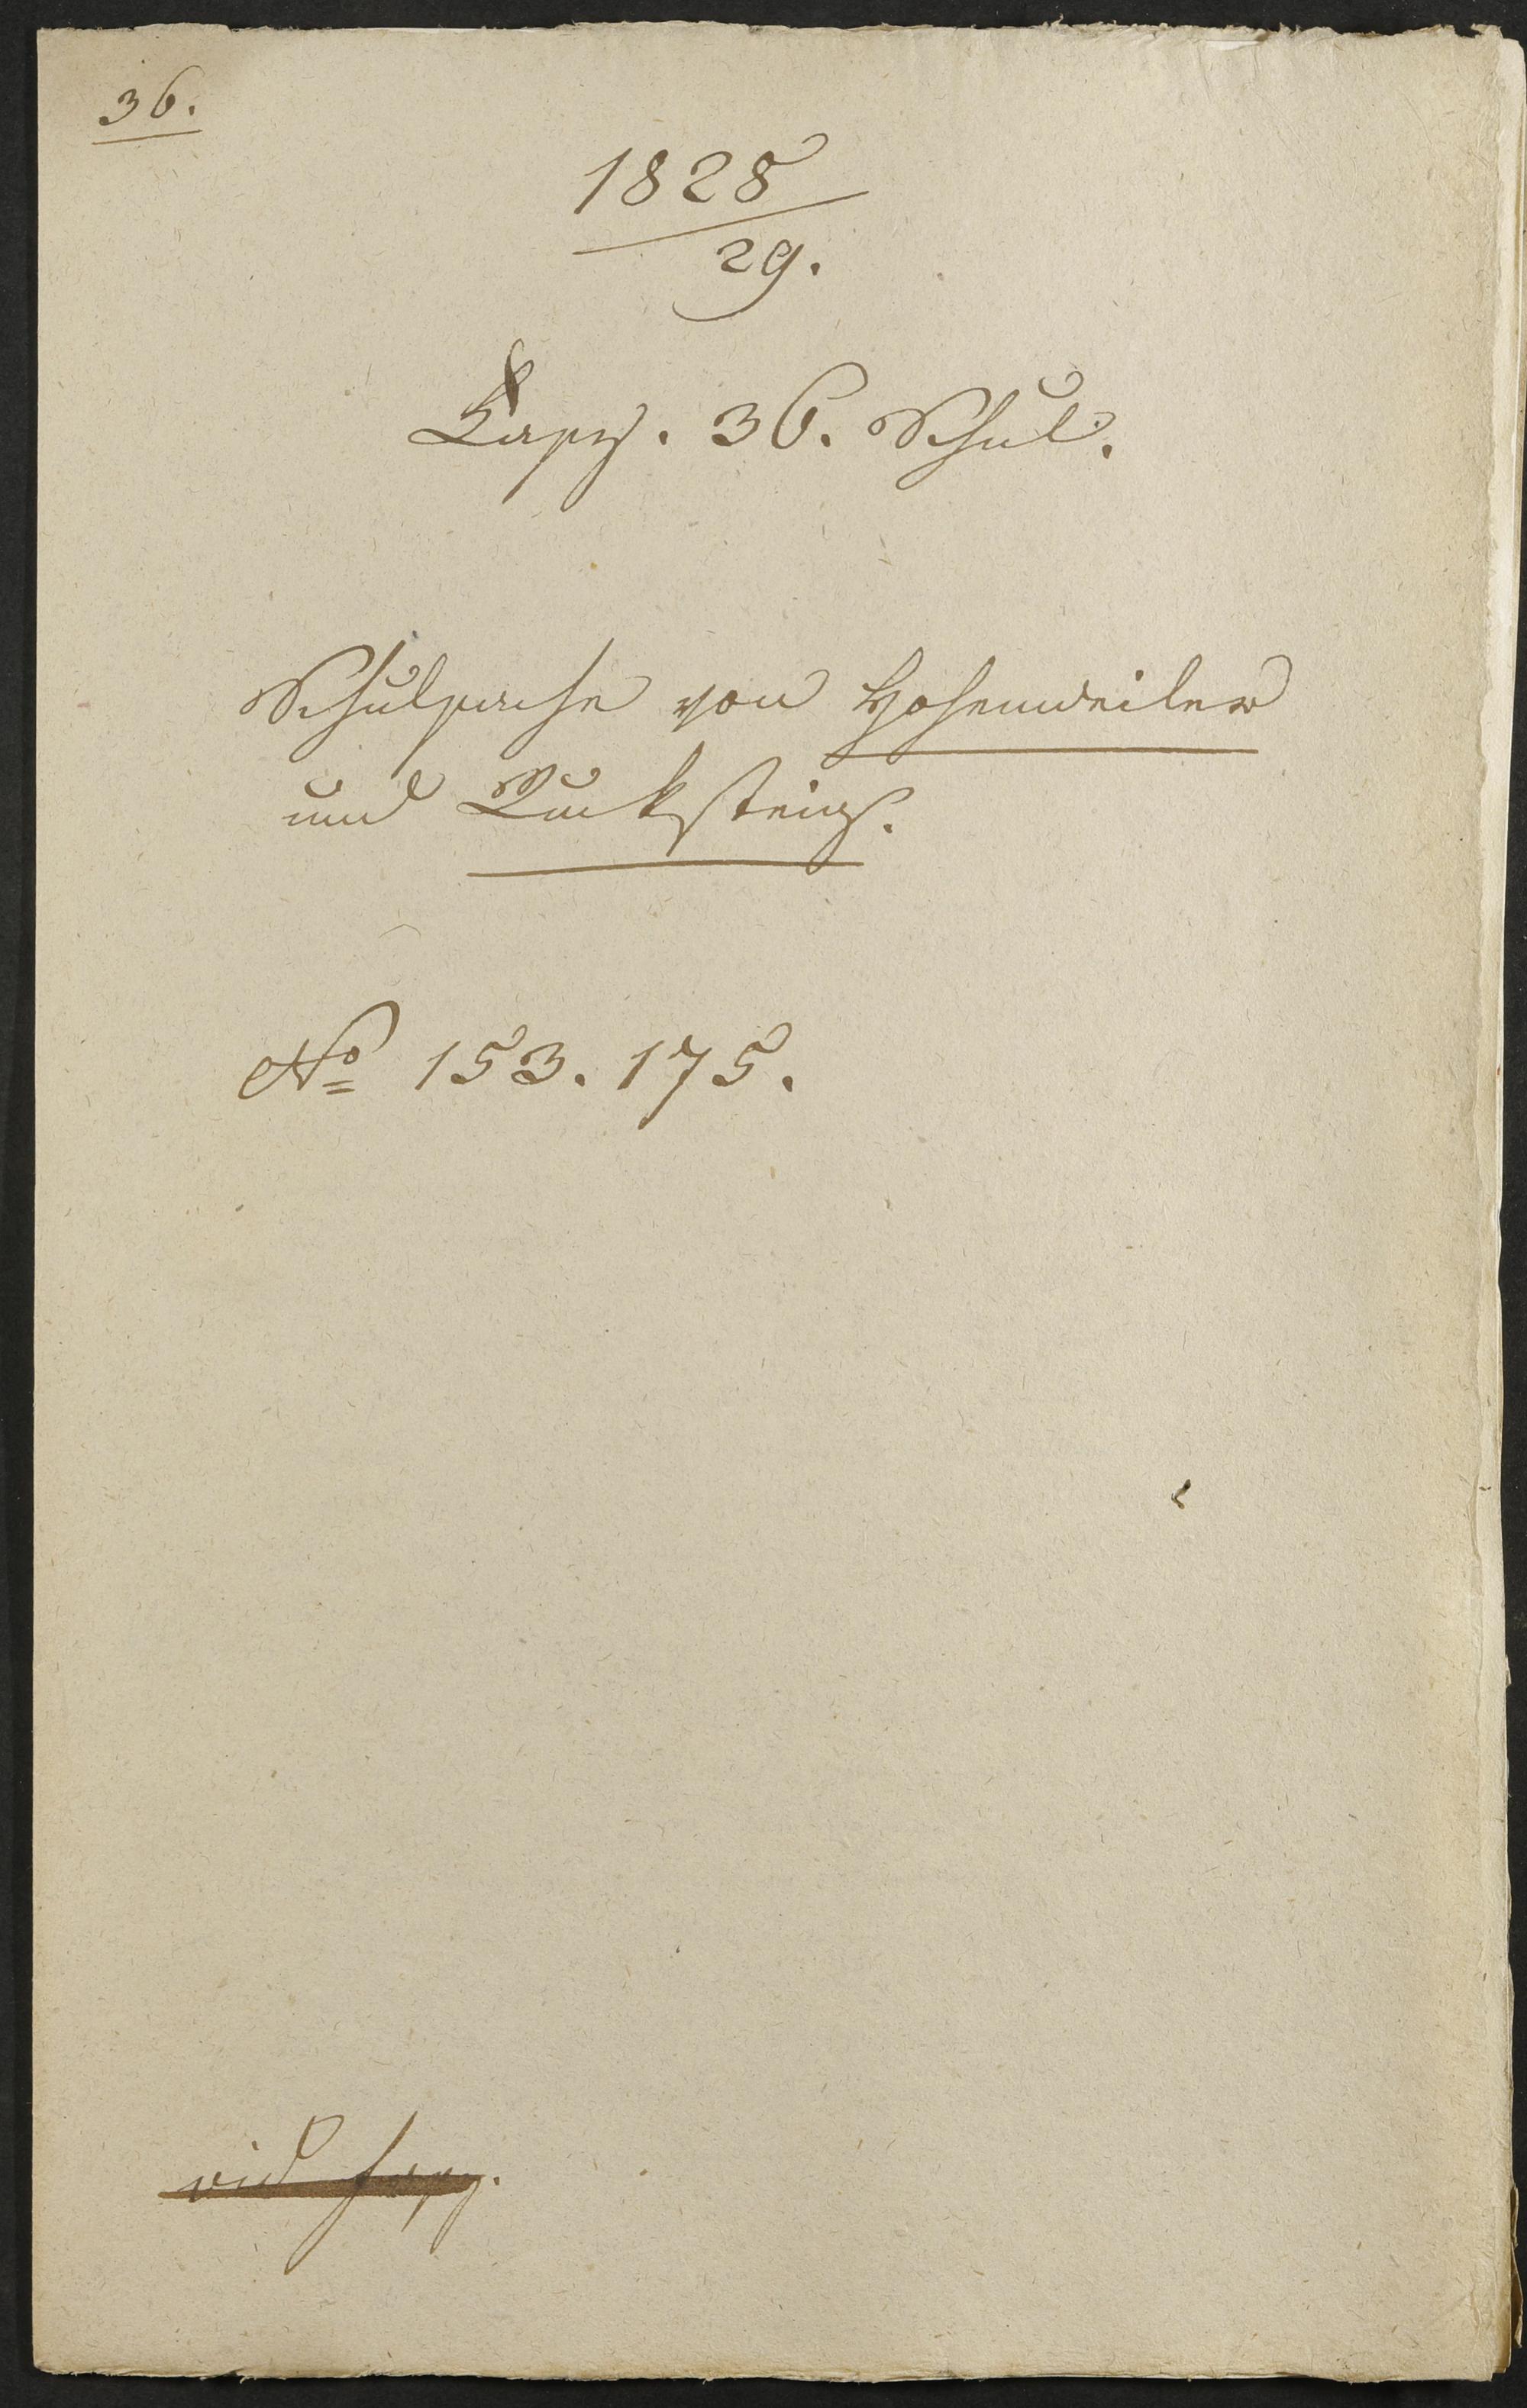 36.
1828
29.
Caps. 36. Schul.
Schulsache von Hohenweiler
und Lucksteig.
No 153. 175.
vid